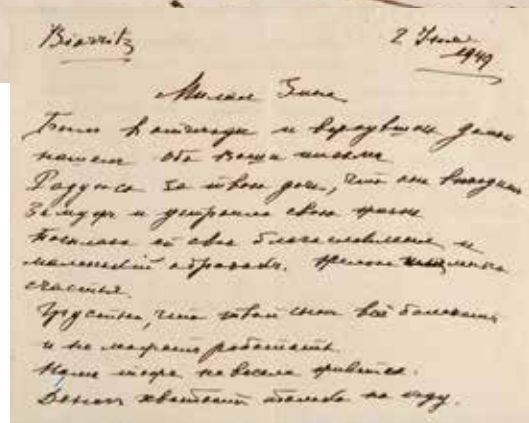 Biarritz
2 Июля
1949
Милая Зина
Были в отъезде и вернувшись домой
нашли оба Ваши письма
Радуюсь за твою дочь, что она выходит
замуж и устроила свою жизнь
Посылаю ей свое благословление и
маленький образок. Желаю много
счастья.
Грустно, что твой сын всё болеет
и не может работать
Нам тоже не весело живется.
Денег хватает только на еду.